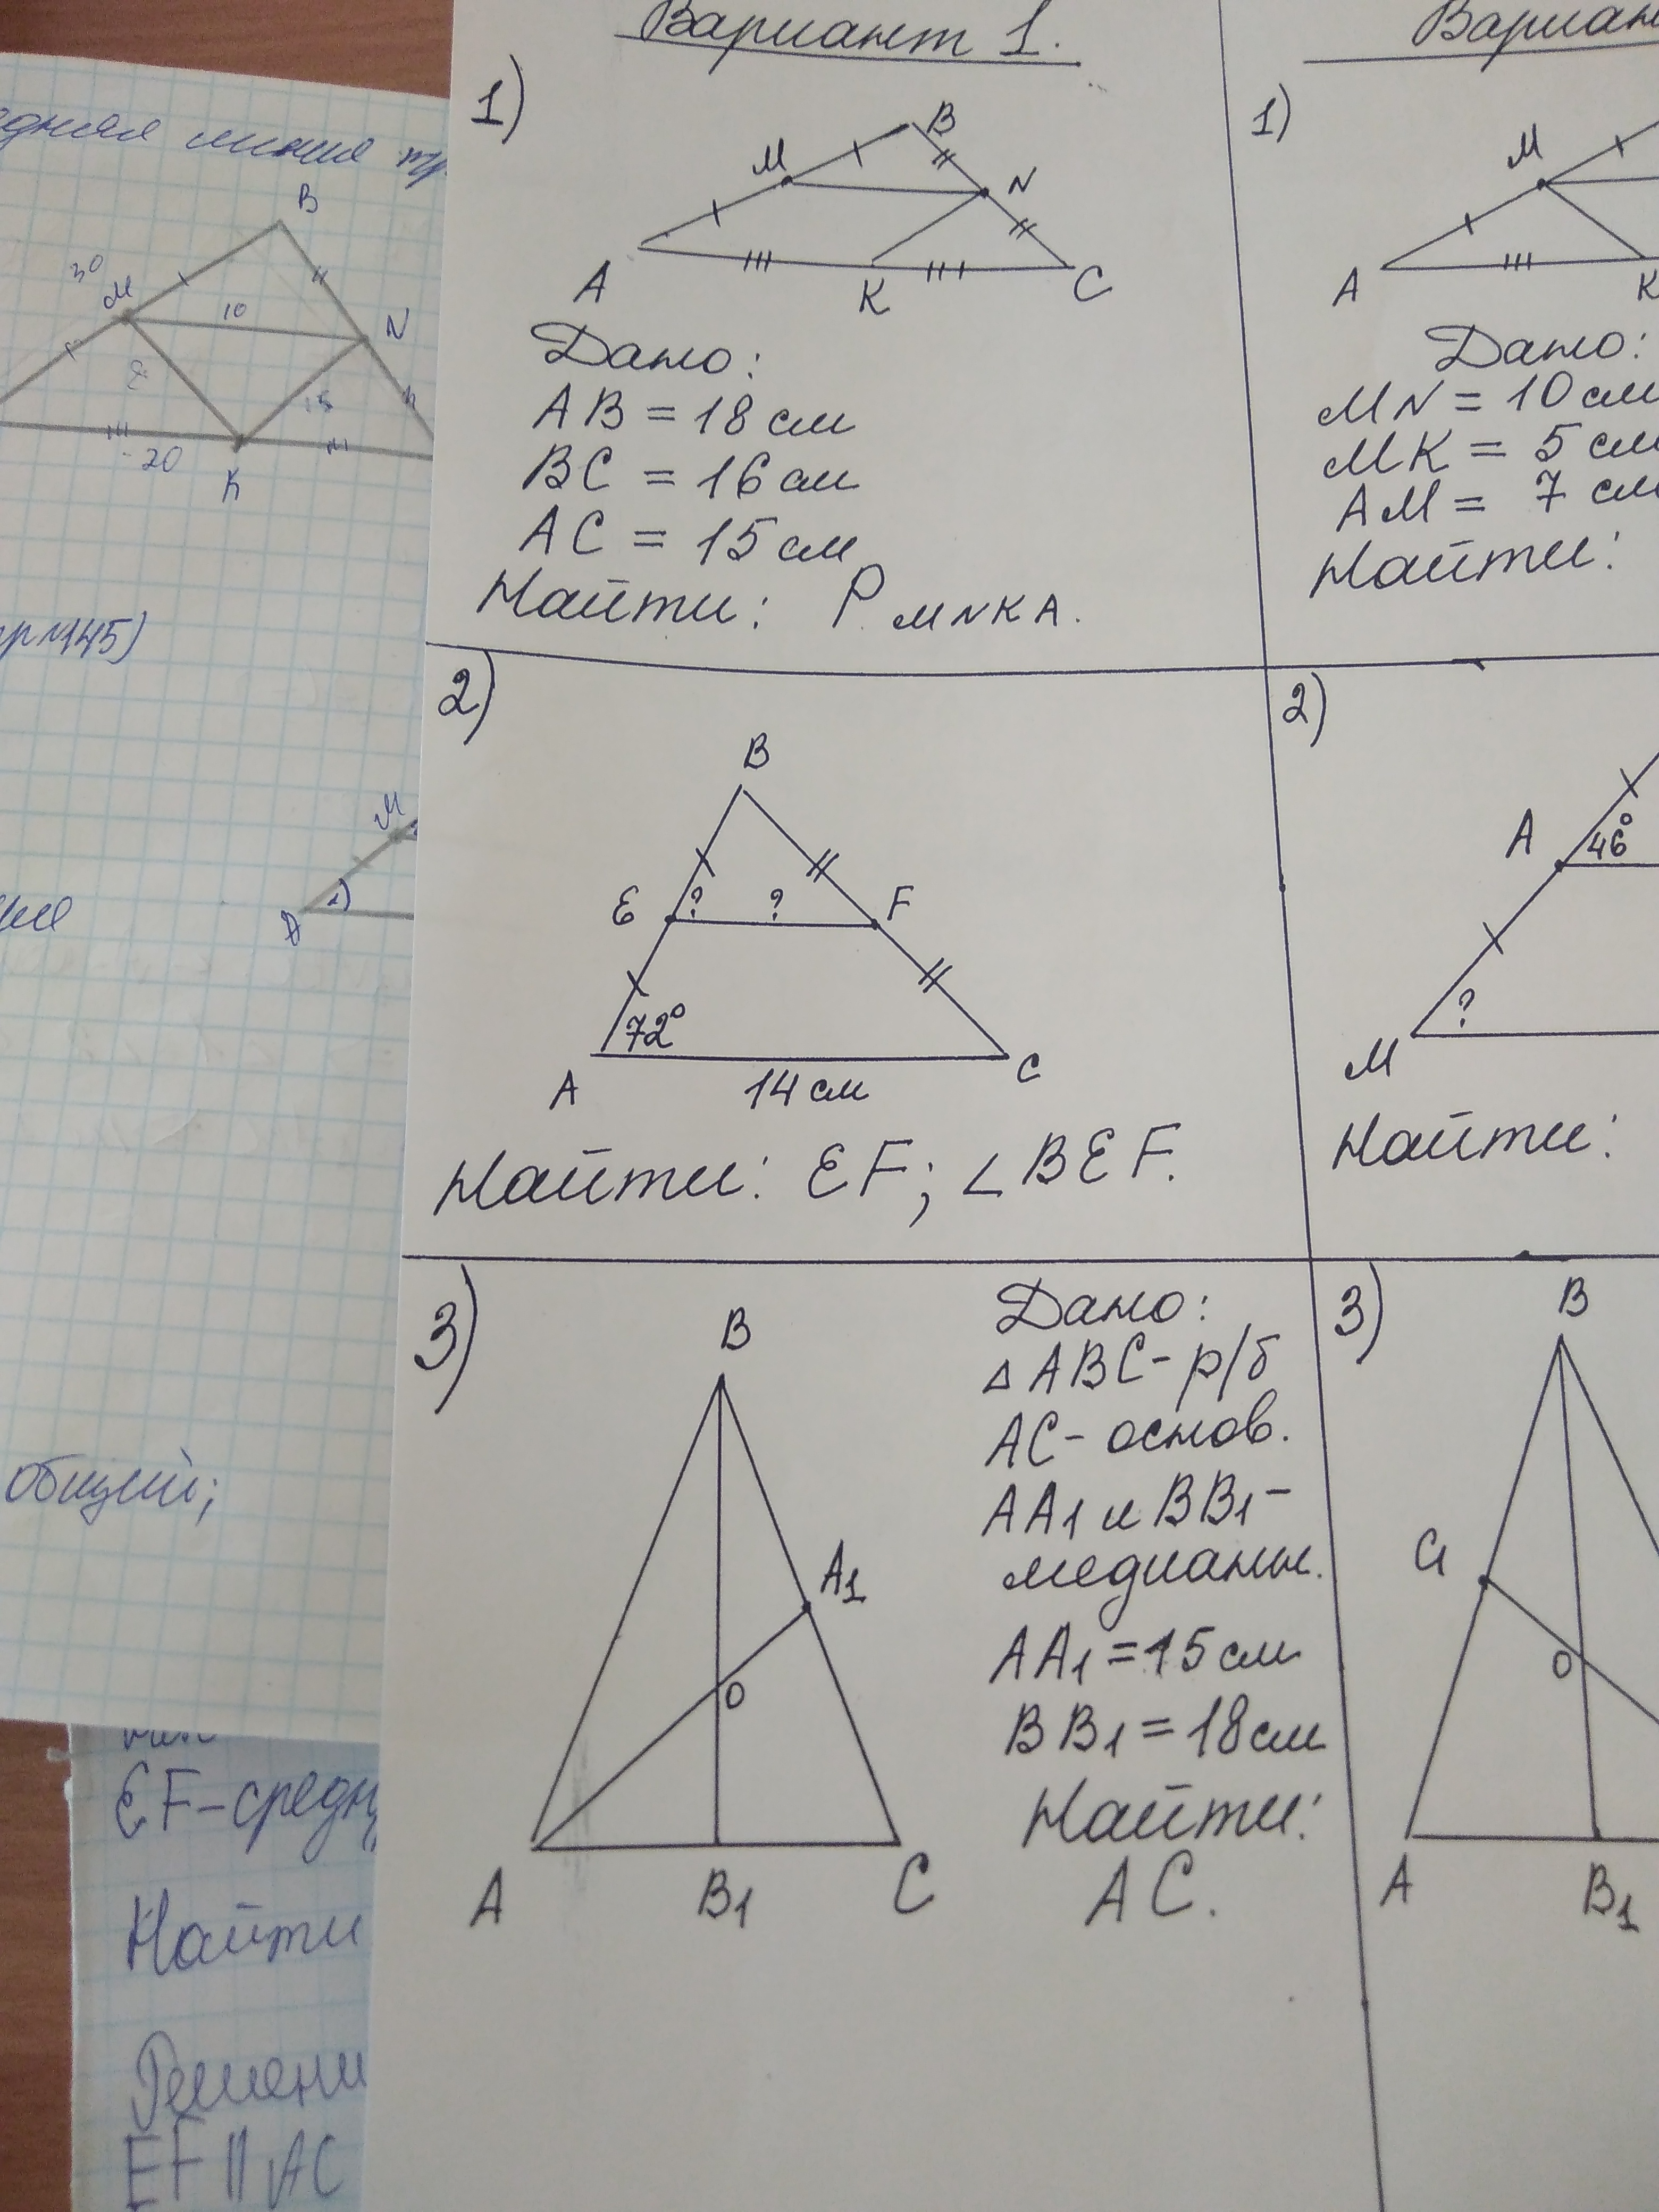 Вариант 1.
1)
B
M
N
A
K
C
Дано:
AB = 18 см
BC = 16 см
AC = 15 см
Найти: P MNKA.
2)
B
E
?
?
F
72°
A
14 см
C
Найти: EF; ∠BEF.
3)
B
A1
O
A
B1
C
Дано:
△ABC - р/б
AC - основ.
AA1 и BB1 -
медианы.
AA1 = 15 см
BB1 = 18 см
Найти:
AC.
1)
M
A
K
Дано:
MN = 10 см
MK = 5 см
AM = 7 см
Найти:
2)
A
46°
?
M
Найти:
3)
B
C1
O
A
B1
линия
B
30
M
10
N
15
20
K
№145)
M
A
общий;
EF - средн
Найти
Решени
EF || AC